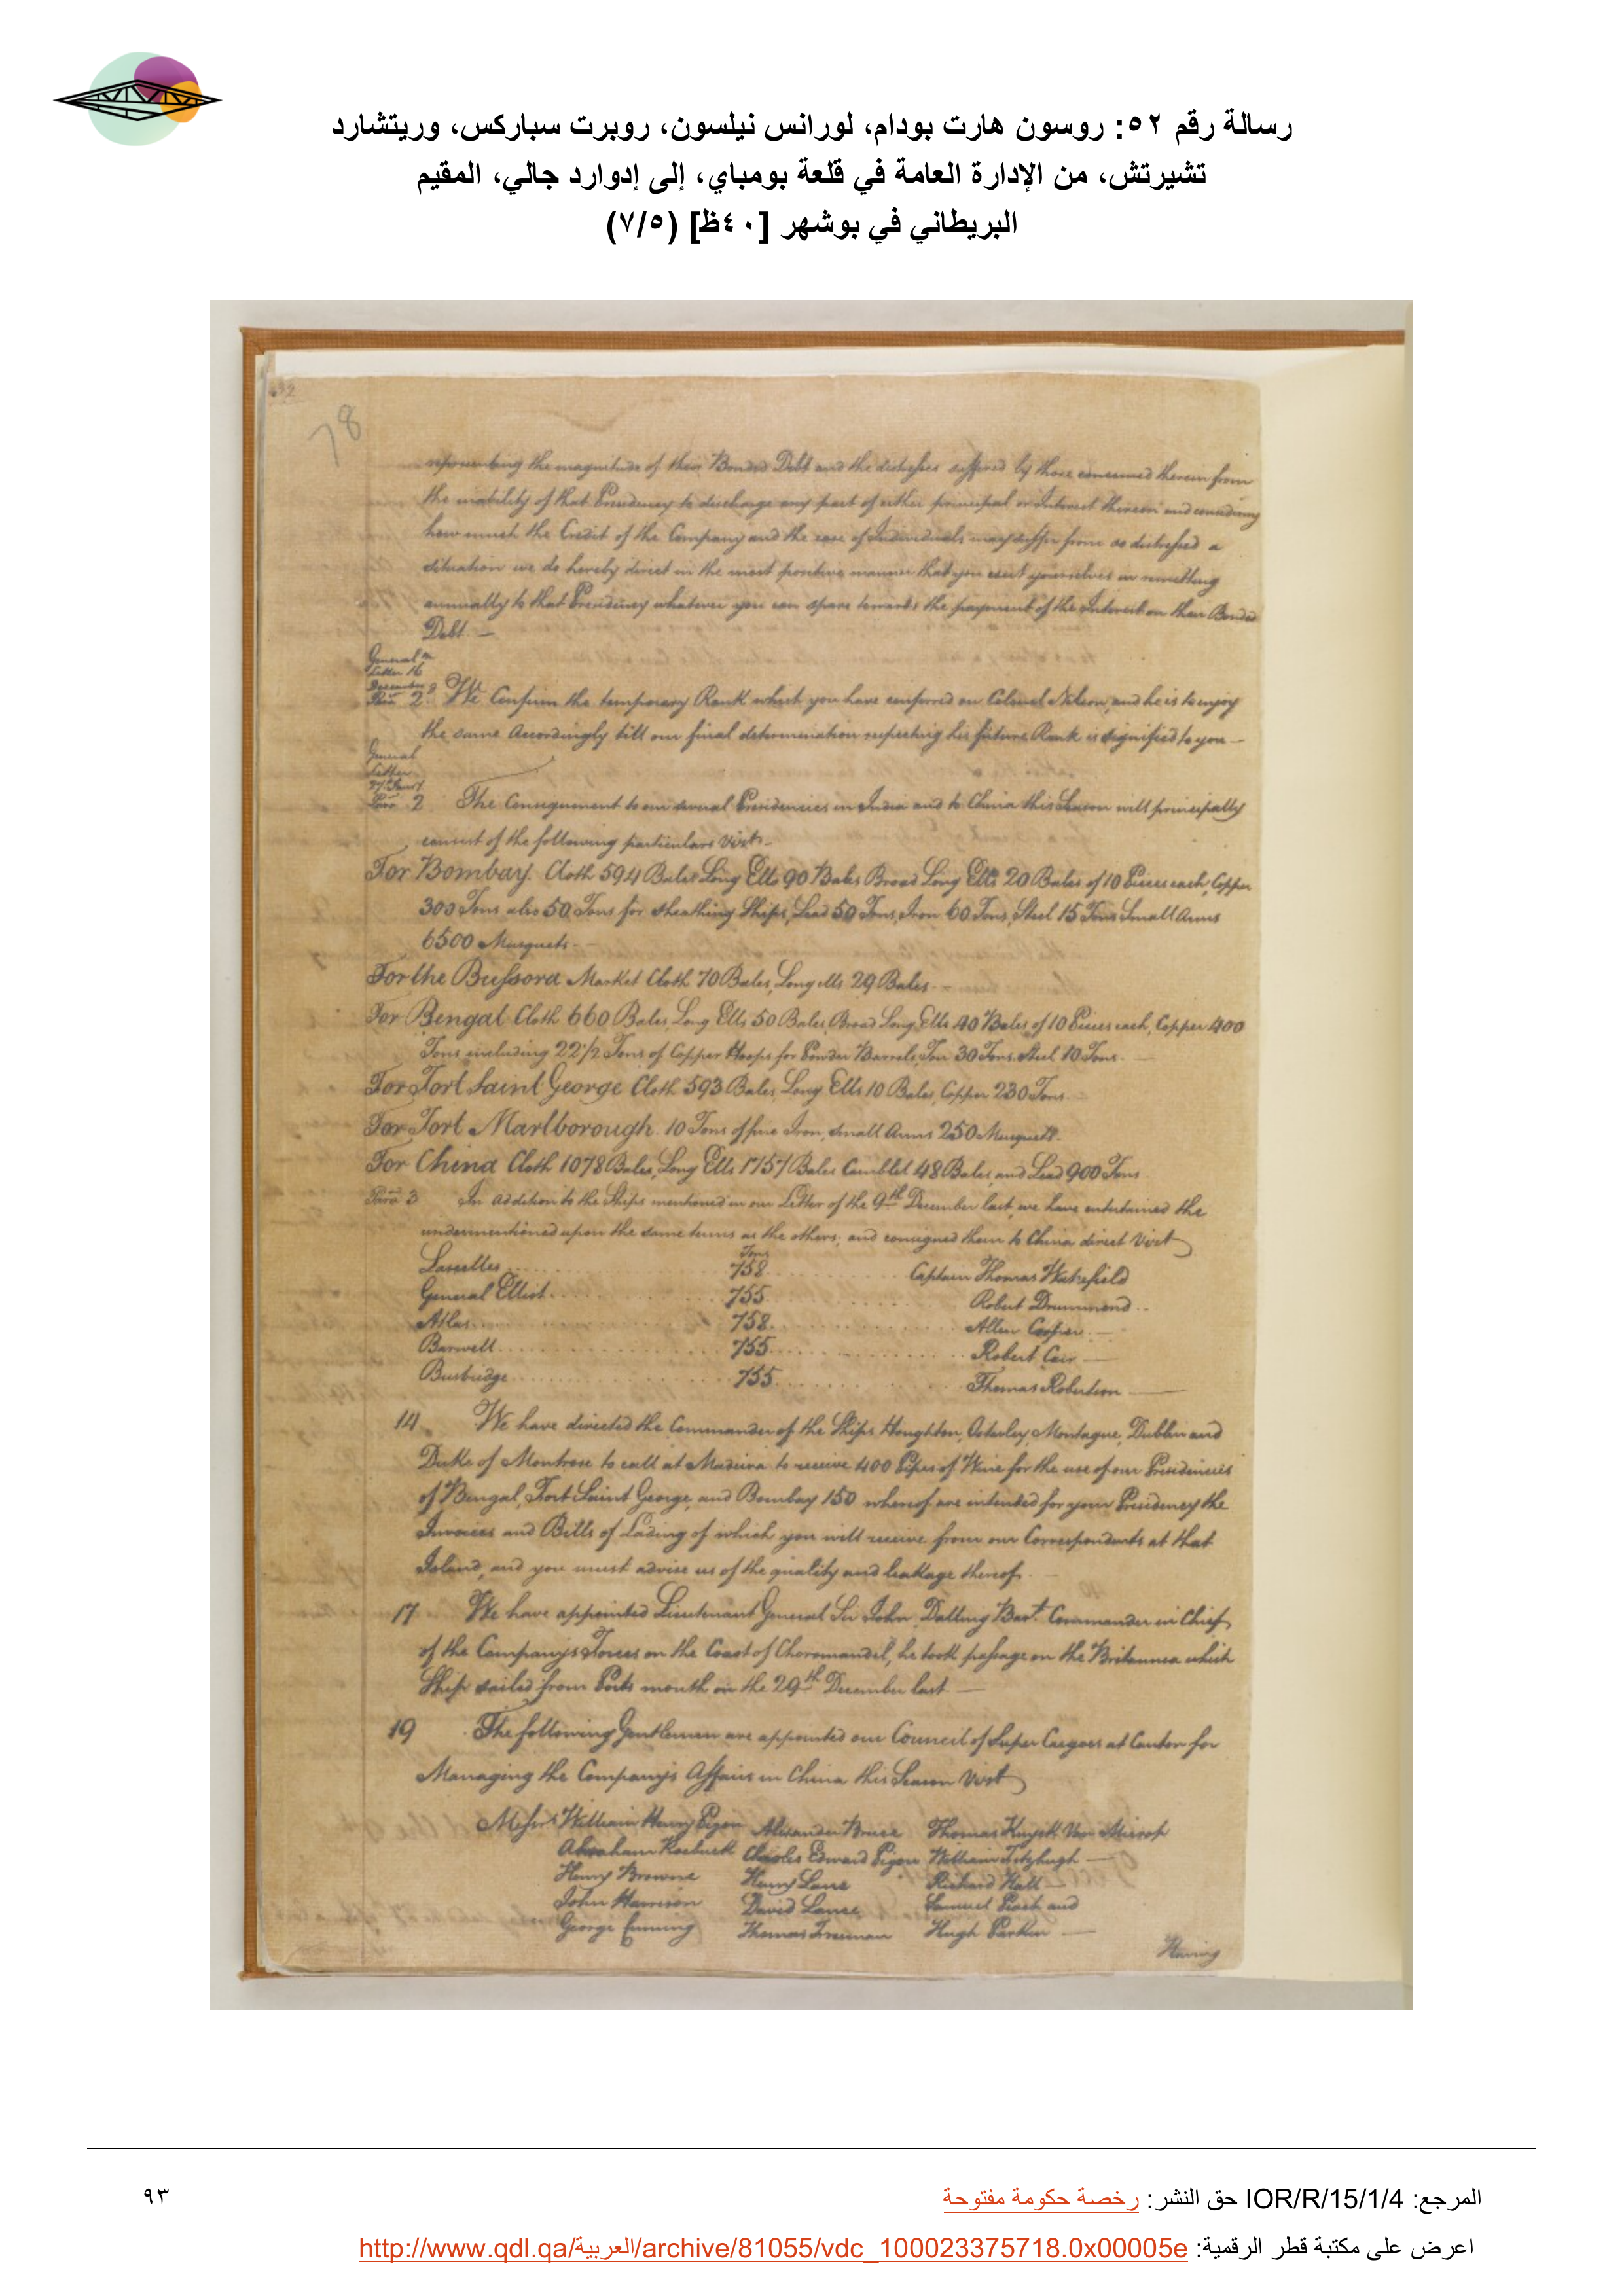 رسالة رقم ٥٢: روسون هارت بودام، لورانس نيلسون، روبرت سباركس، وريتشارد
تشيرتش، من الإدارة العامة في قلعة بومباي، إلى إدوارد جالي، المقيم
البريطاني في بوشهر [٤٠ظ] (٧/٥)
78
representing the magnitude of their Bonded Debt and the distresses suffered by those concerned therein from
the inability of that Presidency to discharge any part of either principal or Interest thereon and considering
how much the Credit of the Company and the case of Individuals may suffer from so distressed a
situation we do hereby direct in the most positive manner that you exert yourselves in remitting
annually to that Presidency whatever you can spare towards the payment of the Interest on their Bonded
Debt. —
General
Letter 16
December
Para 2 We Confirm the temporary Rank which you have conferred on Colonel Nilson, and he is to enjoy
the same Accordingly till our final determination respecting his future Rank is signified to you —
General
Letter
Para 2 The Consignment to our several Presidencies in India and to China this Season will principally
consist of the following particulars Vizt.
For Bombay. Cloth 594 Bales Long Ells 90 Bales Broad Long Ells 20 Bales of 10 Pieces each, Copper
300 Tons also 50 Tons for sheathing Ships, Lead 50 Tons, Iron 60 Tons, Steel 15 Tons Small Arms
6500 Musquets —
For the Bussora Market Cloth 70 Bales, Long ells 29 Bales
For Bengal Cloth 660 Bales, Long Ells 50 Bales, Broad Long Ells 40 Bales of 10 Pieces each, Copper 400
Tons including 22 1/2 Tons of Copper Hoops for Powder Barrels, 30 Tons Steel 10 Tons.
For Fort Saint George Cloth 593 Bales, Long Ells 10 Bales, Copper 230 Tons
For Fort Marlborough. 10 Tons of fine Iron, Small Arms 250 Musquets.
For China Cloth 1078 Bales, Long Ells 1757 Bales Camblet 48 Bales, and Lead 900 Tons
Para 3 In addition to the Ships mentioned in our Letter of the 9th December last, we have entertained the
undermentioned upon the same terms as the others; and consigned them to China direct Vizt
Tons
Lascelles 758 Captain Thomas Wakefield
General Elliot 755 Robert Drummond
Atlas 758 Allen Cooper
Barwell 755 Robert Carr
Busbridge 755 Thomas Robertson
14 We have directed the Commander of the Ships Houghton, Osterley, Montague, Dublin and
Duke of Montrose to call at Madeira to receive 400 Pipes of Wine for the use of our Presidencies
of Bengal, Fort Saint George, and Bombay 150 whereof are intended for your Presidency the
Invoices and Bills of Lading of which you will receive from our Correspondents at that
Island, and you must advise us of the quality and leakage thereof
17 We have appointed Lieutenant General Sir John Dalling Bart. Commander in Chief
of the Companys Forces on the Coast of Choromandel, he took passage on the Britannia which
Ship sailed from Ports mouth on the 29th December last —
19 The following Gentlemen are appointed our Council of Super Cargoes at Canton for
Managing the Company's Affairs in China this Season Vizt
Messrs William Henry Pigou Alexander Bruce Thomas Kuyck Van Mierop
Abraham Roebuck Charles Edward Pigou William Fitzhugh
Henry Browne Henry Lane Richard Hall
John Harrison David Lance Samuel Peach and
George Cuming Thomas Freeman Hugh Parkin
Having
المرجع: IOR/R/15/1/4 حق النشر: رخصة حكومة مفتوحة
٩٣
اعرض على مكتبة قطر الرقمية: http://www.qdl.qa/العربية/archive/81055/vdc_100023375718.0x00005e